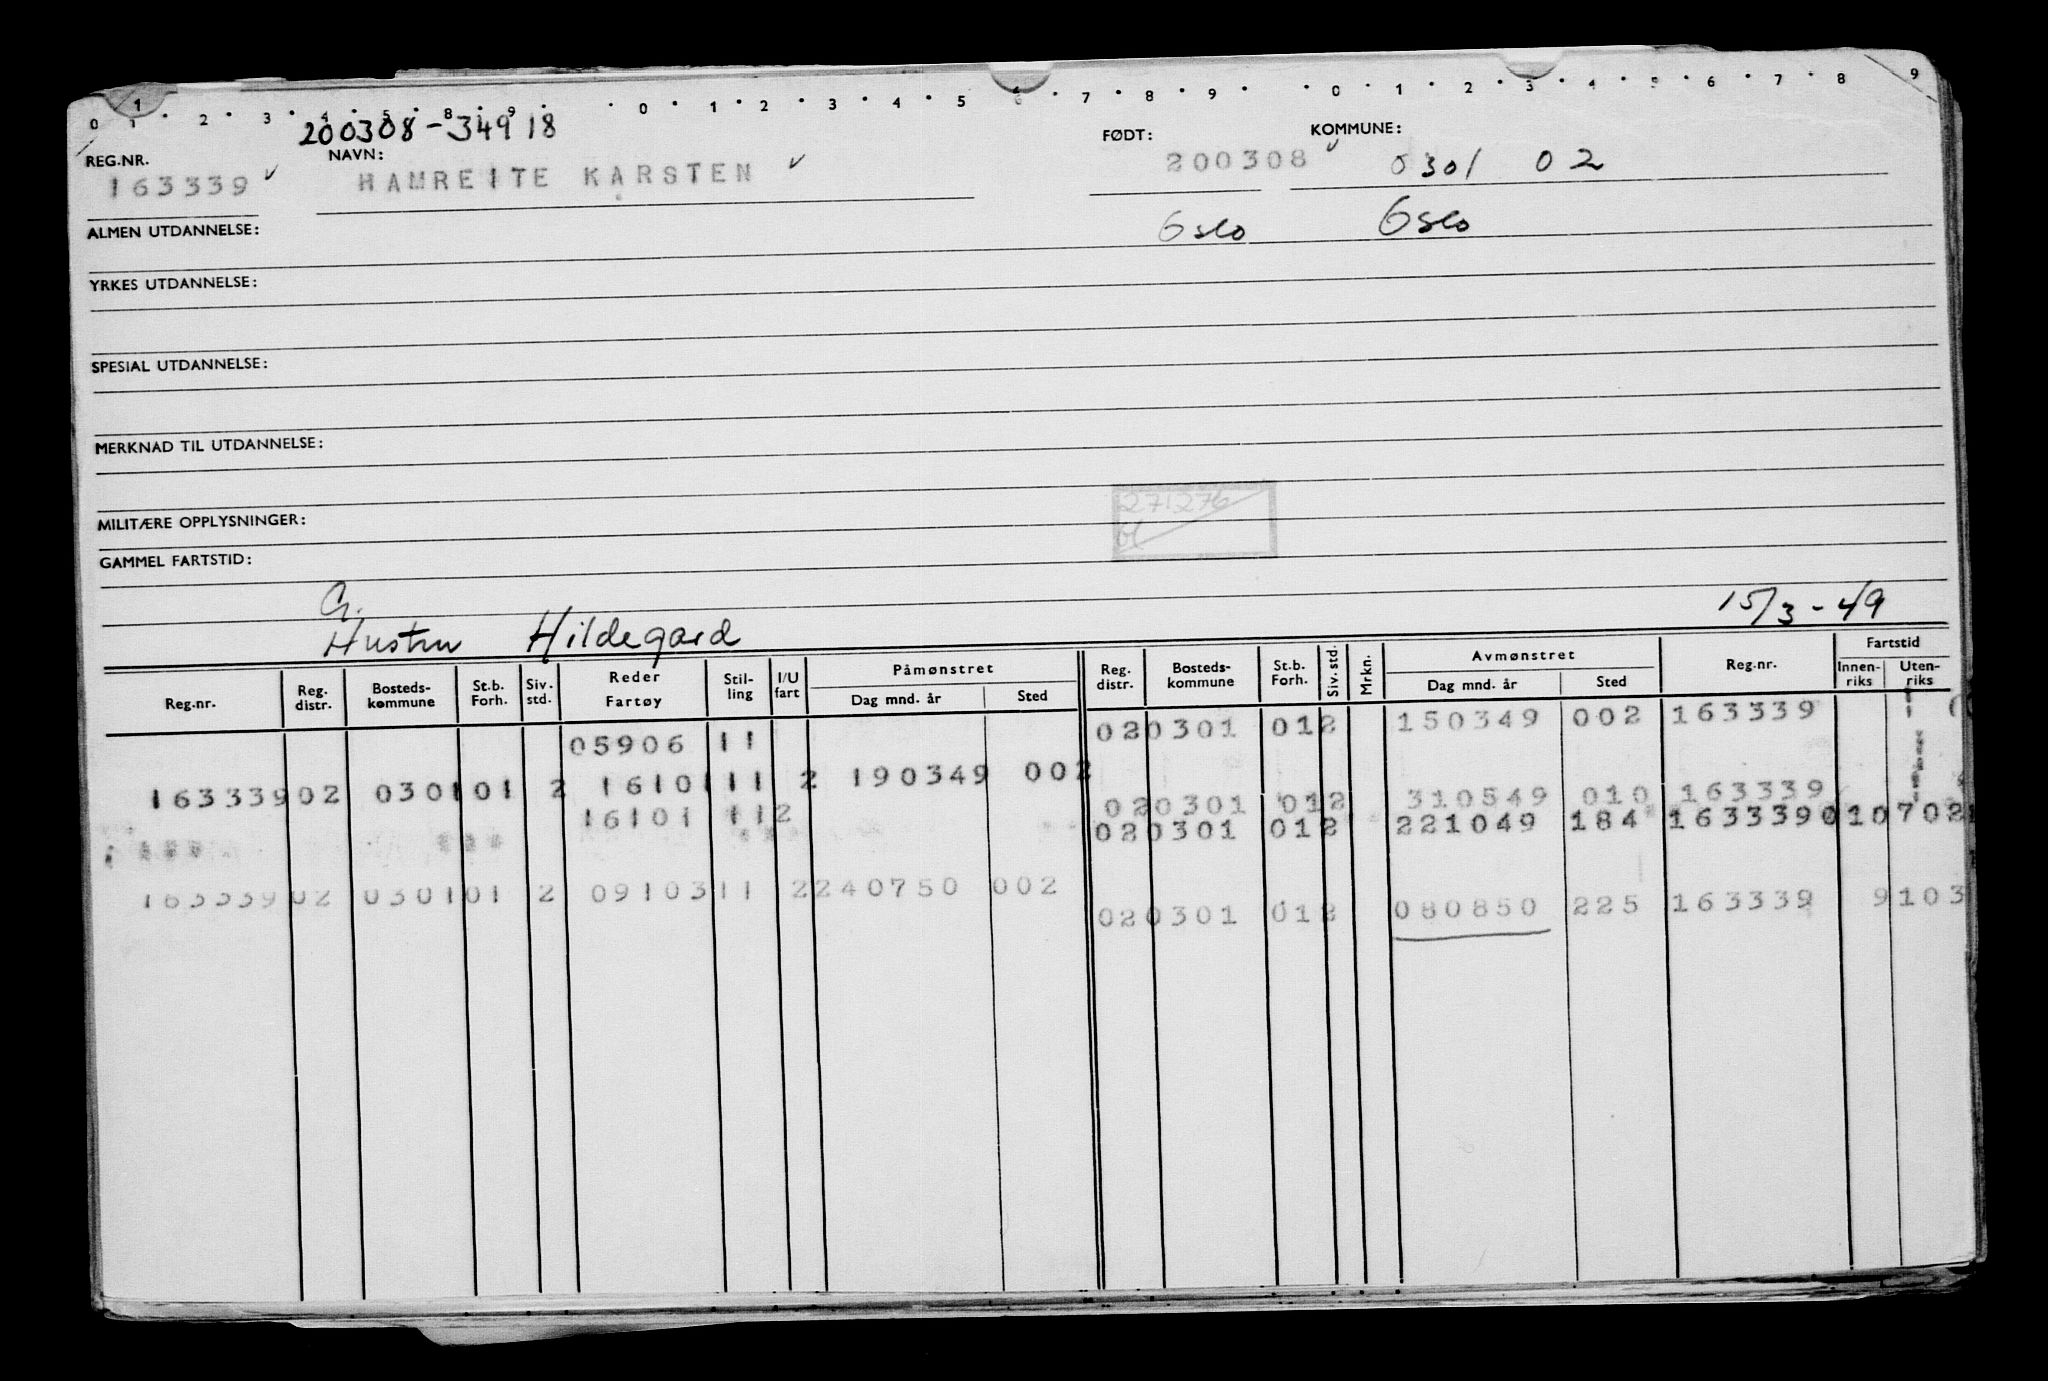 0 1 2 3 4 5 8 9 0 1 2 3 4 5 6 7 8 9 0 1 2 3 4 5 6 7 8 9
200308-34918
REG.NR. NAVN: FØDT: KOMMUNE:
163339 HAMREITE KARSTEN 200308 0301 02
ALMEN UTDANNELSE: Oslo Oslo
YRKES UTDANNELSE:
SPESIAL UTDANNELSE:
MERKNAD TIL UTDANNELSE:
271276
MILITÆRE OPPLYSNINGER:
GAMMEL FARTSTID:
G.
Hustru Hildegard 15/3-49
Reg.nr. Reg. distr. Bosteds-kommune St.b. Forh. Siv. std. Reder Fartøy Stil-ling I/U fart Påmønstret Dag mnd. år Sted Reg. distr. Bosteds-kommune St.b. Forh. Siv. std. Mrkn. Avmønstret Dag mnd. år Sted Reg.nr. Fartstid Innen-riks Uten-riks
05906 11 020301 012 150349 002 163339
16333902 030101 2 1610111 2 190349 002
020301 012 310549 010 163339
16101 112 020301 012 221049 184 163339010702
16333902 030101 2 0910311 2240750 002
020301 012 080850 225 163339 9103